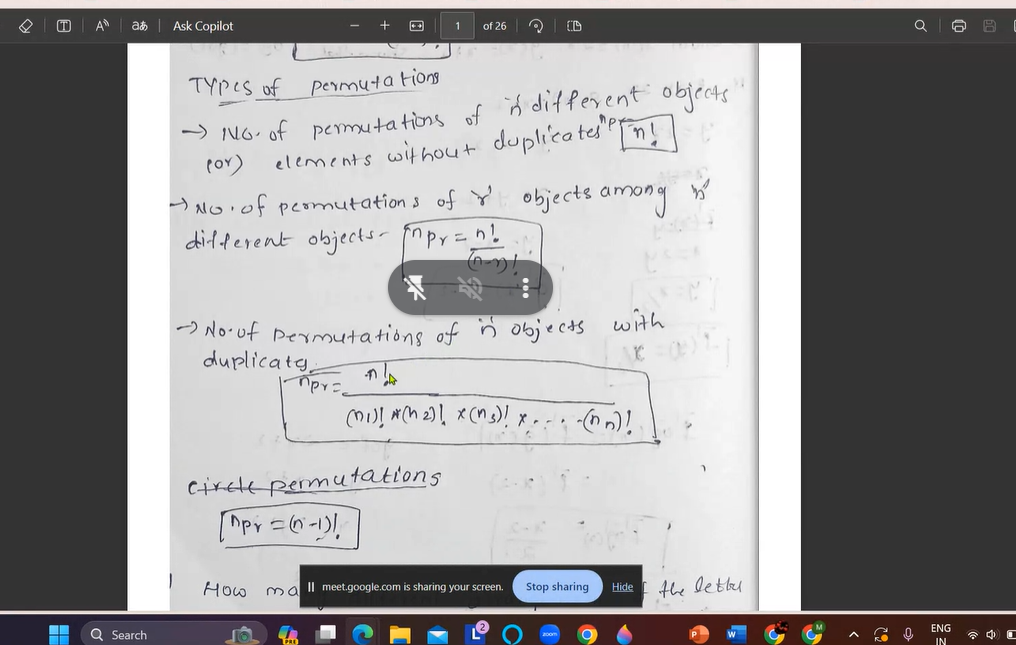 Ask Copilot
1 of 26
TYPES of permutations
→ No. of permutations of 'n' different objects
(or) elements without duplicates nPr n!
→ No. of permutations of 'r' objects among 'n'
different objects- nPr = n!
(n-r)!
→ No. of permutations of 'n' objects with
duplicate
nPr = n!
(n1)! * (n2)! x (n3)! x . . . . (nn)!
circle permutations
nPr = (n-1)!
meet.google.com is sharing your screen. Stop sharing Hide
How the letter
Search
PRE
2
zoom
M
ENG
IN